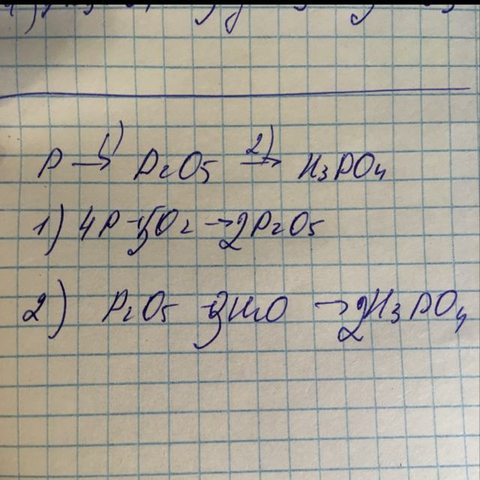 P →1) P2O5 →2) H3PO4
1) 4P + 5O2 → 2P2O5
2) P2O5 + 3H2O → 2H3PO4